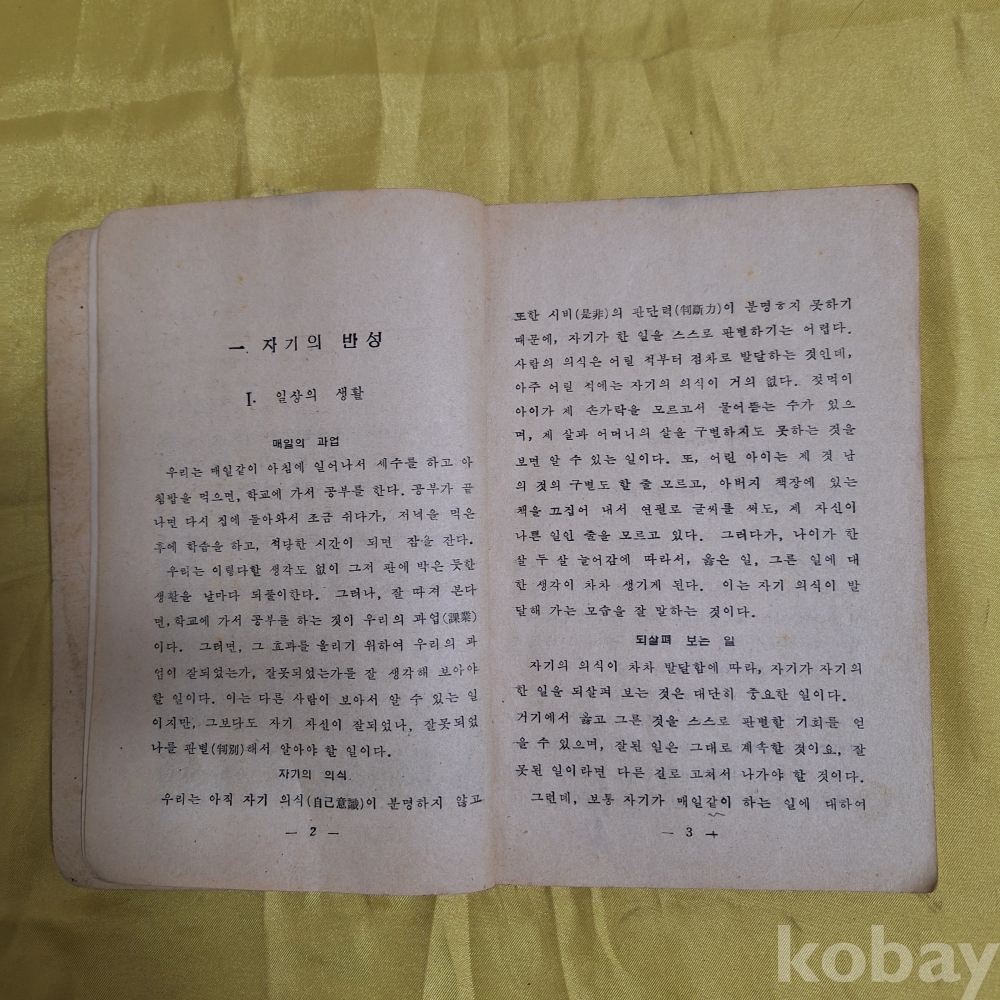 一. 자기의 반성
I. 일상의 생활
매일의 과업
우리는 매일같이 아침에 일어나서 세수를 하고 아
침밥을 먹으면, 학교에 가서 공부를 한다. 공부가 끝
나면 다시 집에 돌아와서 조금 쉬다가, 저녁을 먹은
후에 학습을 하고, 적당한 시간이 되면 잠을 잔다.
우리는 이렇다할 생각도 없이 그저 판에 박은 듯한
생활을 날마다 되풀이한다. 그러나, 잘 따져 본다
면, 학교에 가서 공부를 하는 것이 우리의 과업(課業)
이다. 그러면, 그 효과를 올리기 위하여 우리의 과
업이 잘되었는가, 잘못되었는가를 잘 생각해 보아야
할 일이다. 이는 다른 사람이 보아서 알 수 있는 일
이지만, 그보다도 자기 자신이 잘되었나, 잘못되었
나를 판별(判別)해서 알아야 할 일이다.
자기의 의식
우리는 아직 자기 의식(自己意識)이 분명하지 않고
— 2 —
또한 시비(是非)의 판단력(判斷力)이 분명ㅎ지 못하기
때문에, 자기가 한 일을 스스로 판별하기는 어렵다.
사람의 의식은 어릴 적부터 점차로 발달하는 것인데,
아주 어릴 적에는 자기의 의식이 거의 없다. 젖먹이
아이가 제 손가락을 모르고서 물어뜯는 수가 있으
며, 제 살과 어머니의 살을 구별하지도 못하는 것을
보면 알 수 있는 일이다. 또, 어린 아이는 제 것 남
의 것의 구별도 할 줄 모르고, 아버지 책장에 있는
책을 끄집어 내서 연필로 글씨를 써도, 제 자신이
나쁜 일인 줄을 모르고 있다. 그러다가, 나이가 한
살 두 살 늘어감에 따라서, 옳은 일, 그른 일에 대
한 생각이 차차 생기게 된다. 이는 자기 의식이 발
달해 가는 모습을 잘 말하는 것이다.
되살펴 보는 일
자기의 의식이 차차 발달함에 따라, 자기가 자기의
한 일을 되살펴 보는 것은 대단히 중요한 일이다.
거기에서 옳고 그른 것을 스스로 판별할 기회를 얻
을 수 있으며, 잘된 일은 그대로 계속할 것이요, 잘
못된 일이라면 다른 길로 고쳐서 나가야 할 것이다.
그런데, 보통 자기가 매일같이 하는 일에 대하여
— 3 —
kobay